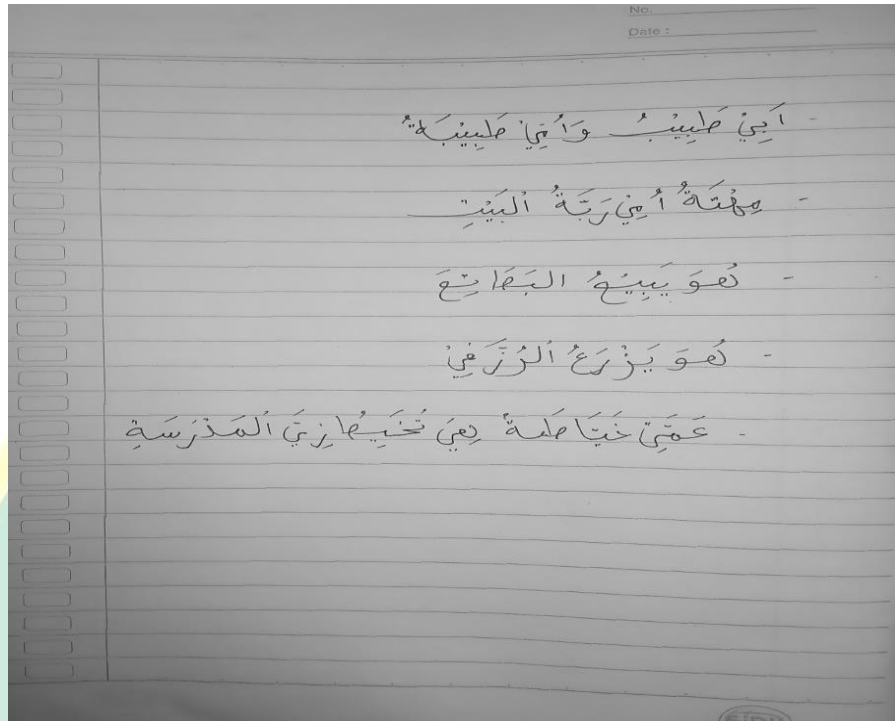 No.
Date :
- اَبِيْ طَبِيْبُ وَاُمِّيْ طَبِيْبَةُ
- مِهْنَةُ اُمِّيْ رَبَّةُ الْبَيْتِ
- هُوَ يَبِيْعُ الْبَضَائِعَ
- هُوَ يَزْرَعُ الرُّزَّ فِيْ
- عَمَّتِيْ خَيَّاطَةٌ هِيَ تُخَيِّطُ زِيَّ الْمَدْرَسَةِ